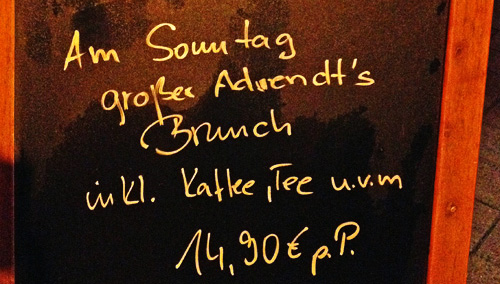 Am Sonntag
großer Advendt's
Brunch
inkl. Kaffee, Tee u.v.m
14,90 € p.P.